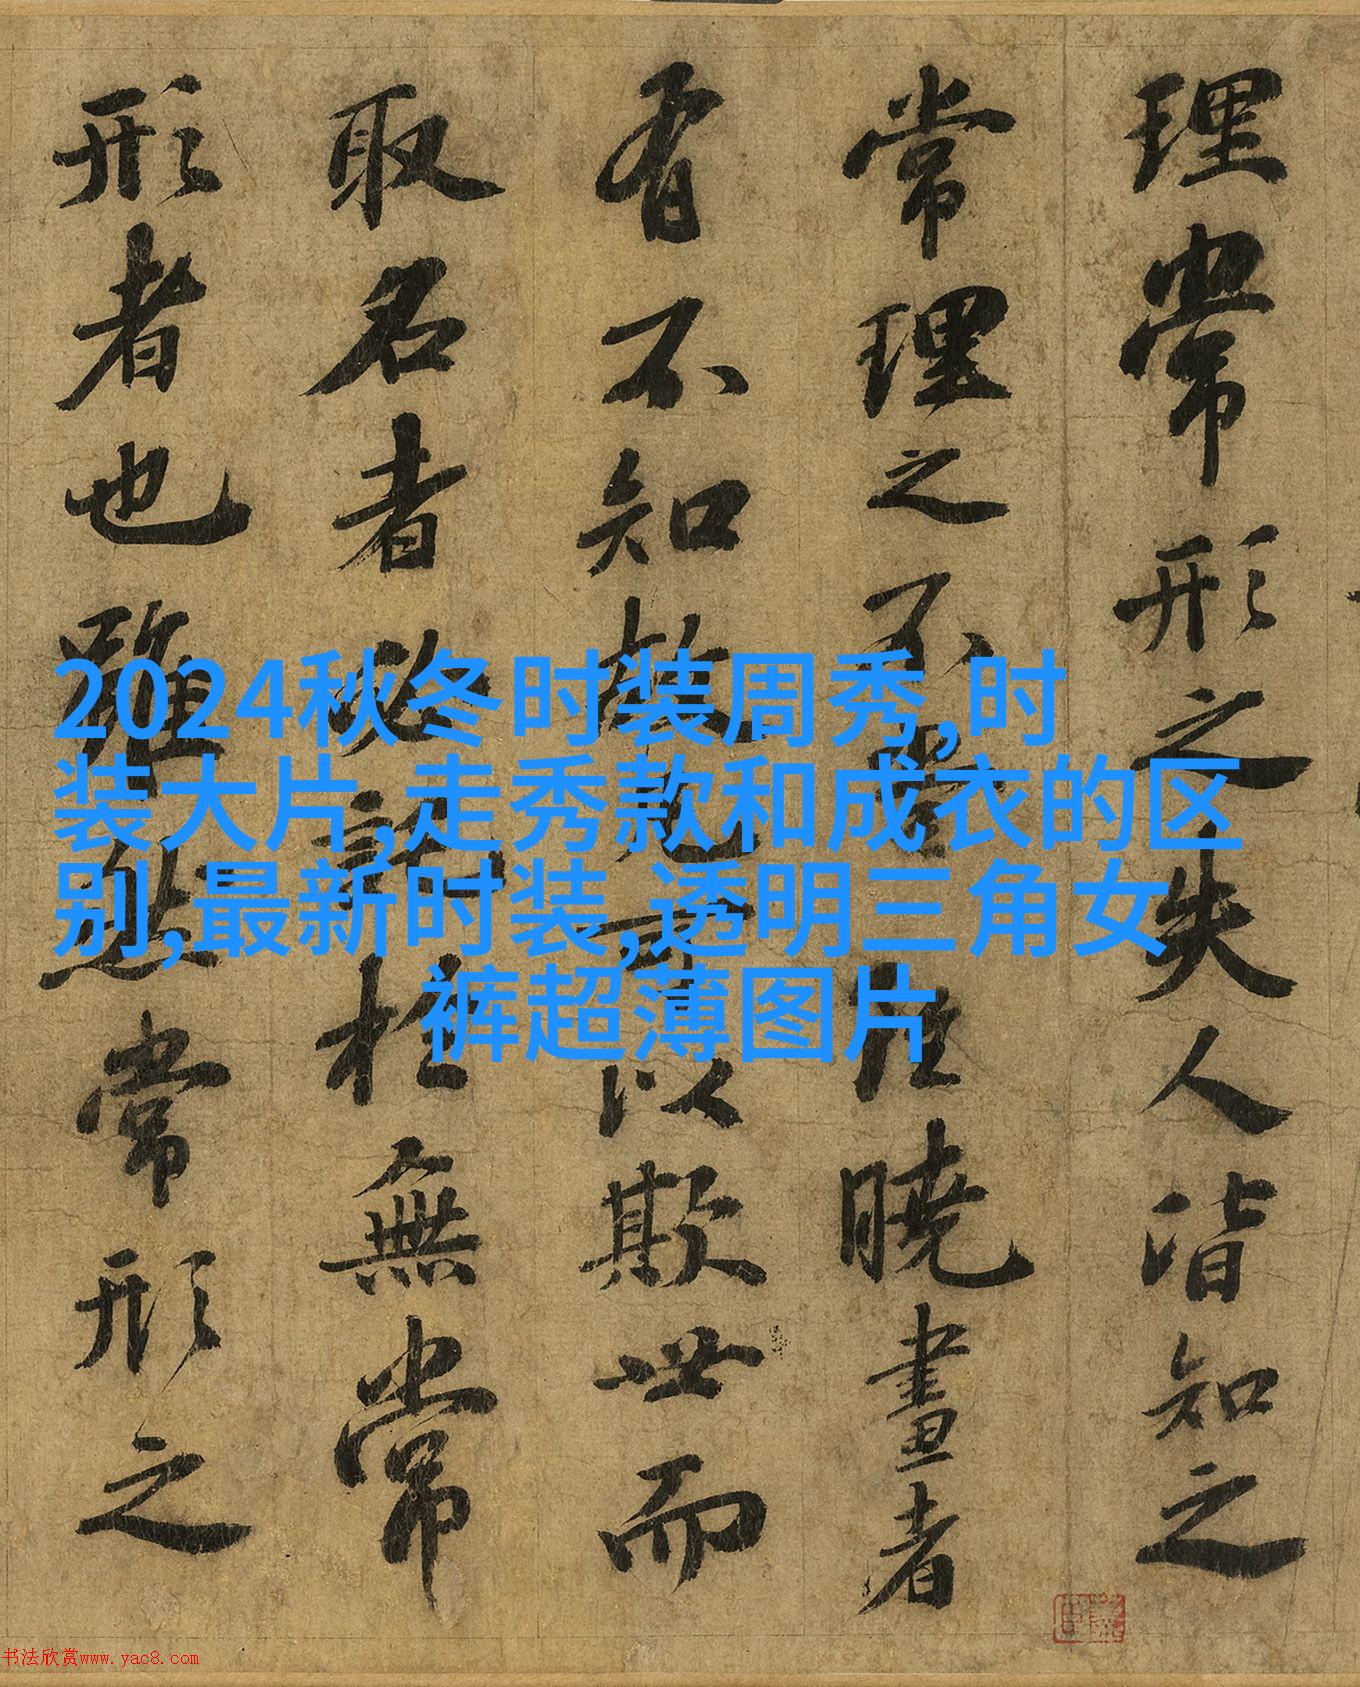 理常形之失人皆知之
常理之不當雖曉畫者
有不知故凡可以欺世而
取名者必託於無常
形者也雖然常形之
2024秋冬时装周秀,时
装大片,走秀款和成衣的区
别,最新时装,透明三角女
裤超薄图片
书法欣赏www.yac8.com